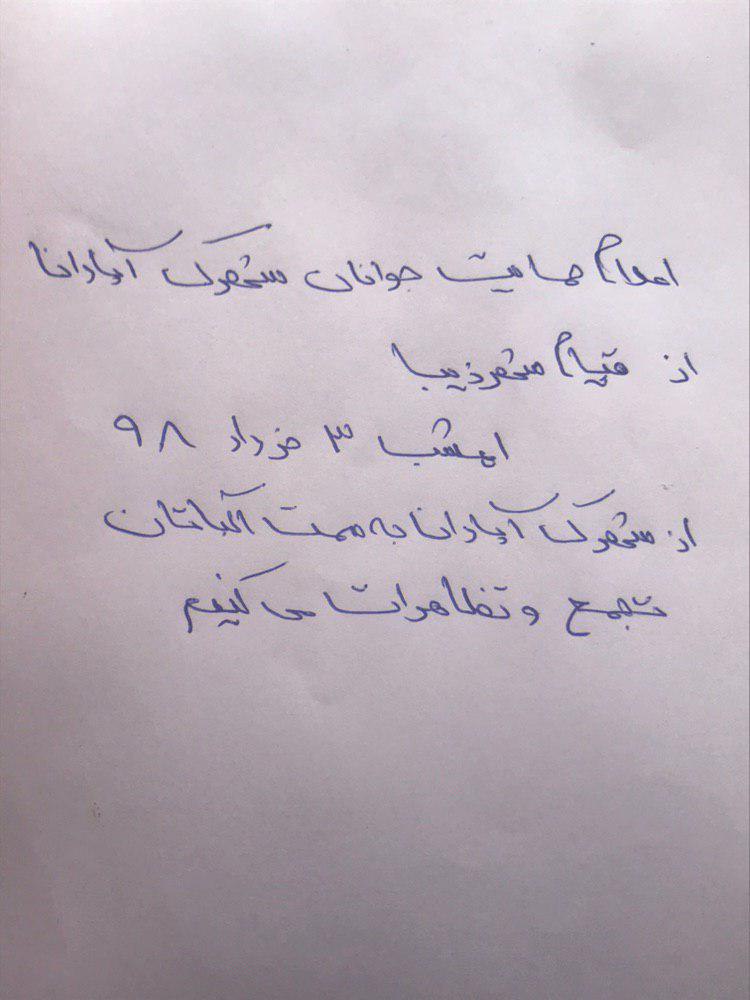 اعلام حمایت جوانان شهرک آپادانا
از قیام شهر زیبا
امشب ۳ خرداد ۹۸
از شهرک آپادانا به سمت اکباتان
تجمع و تظاهرات می کنیم